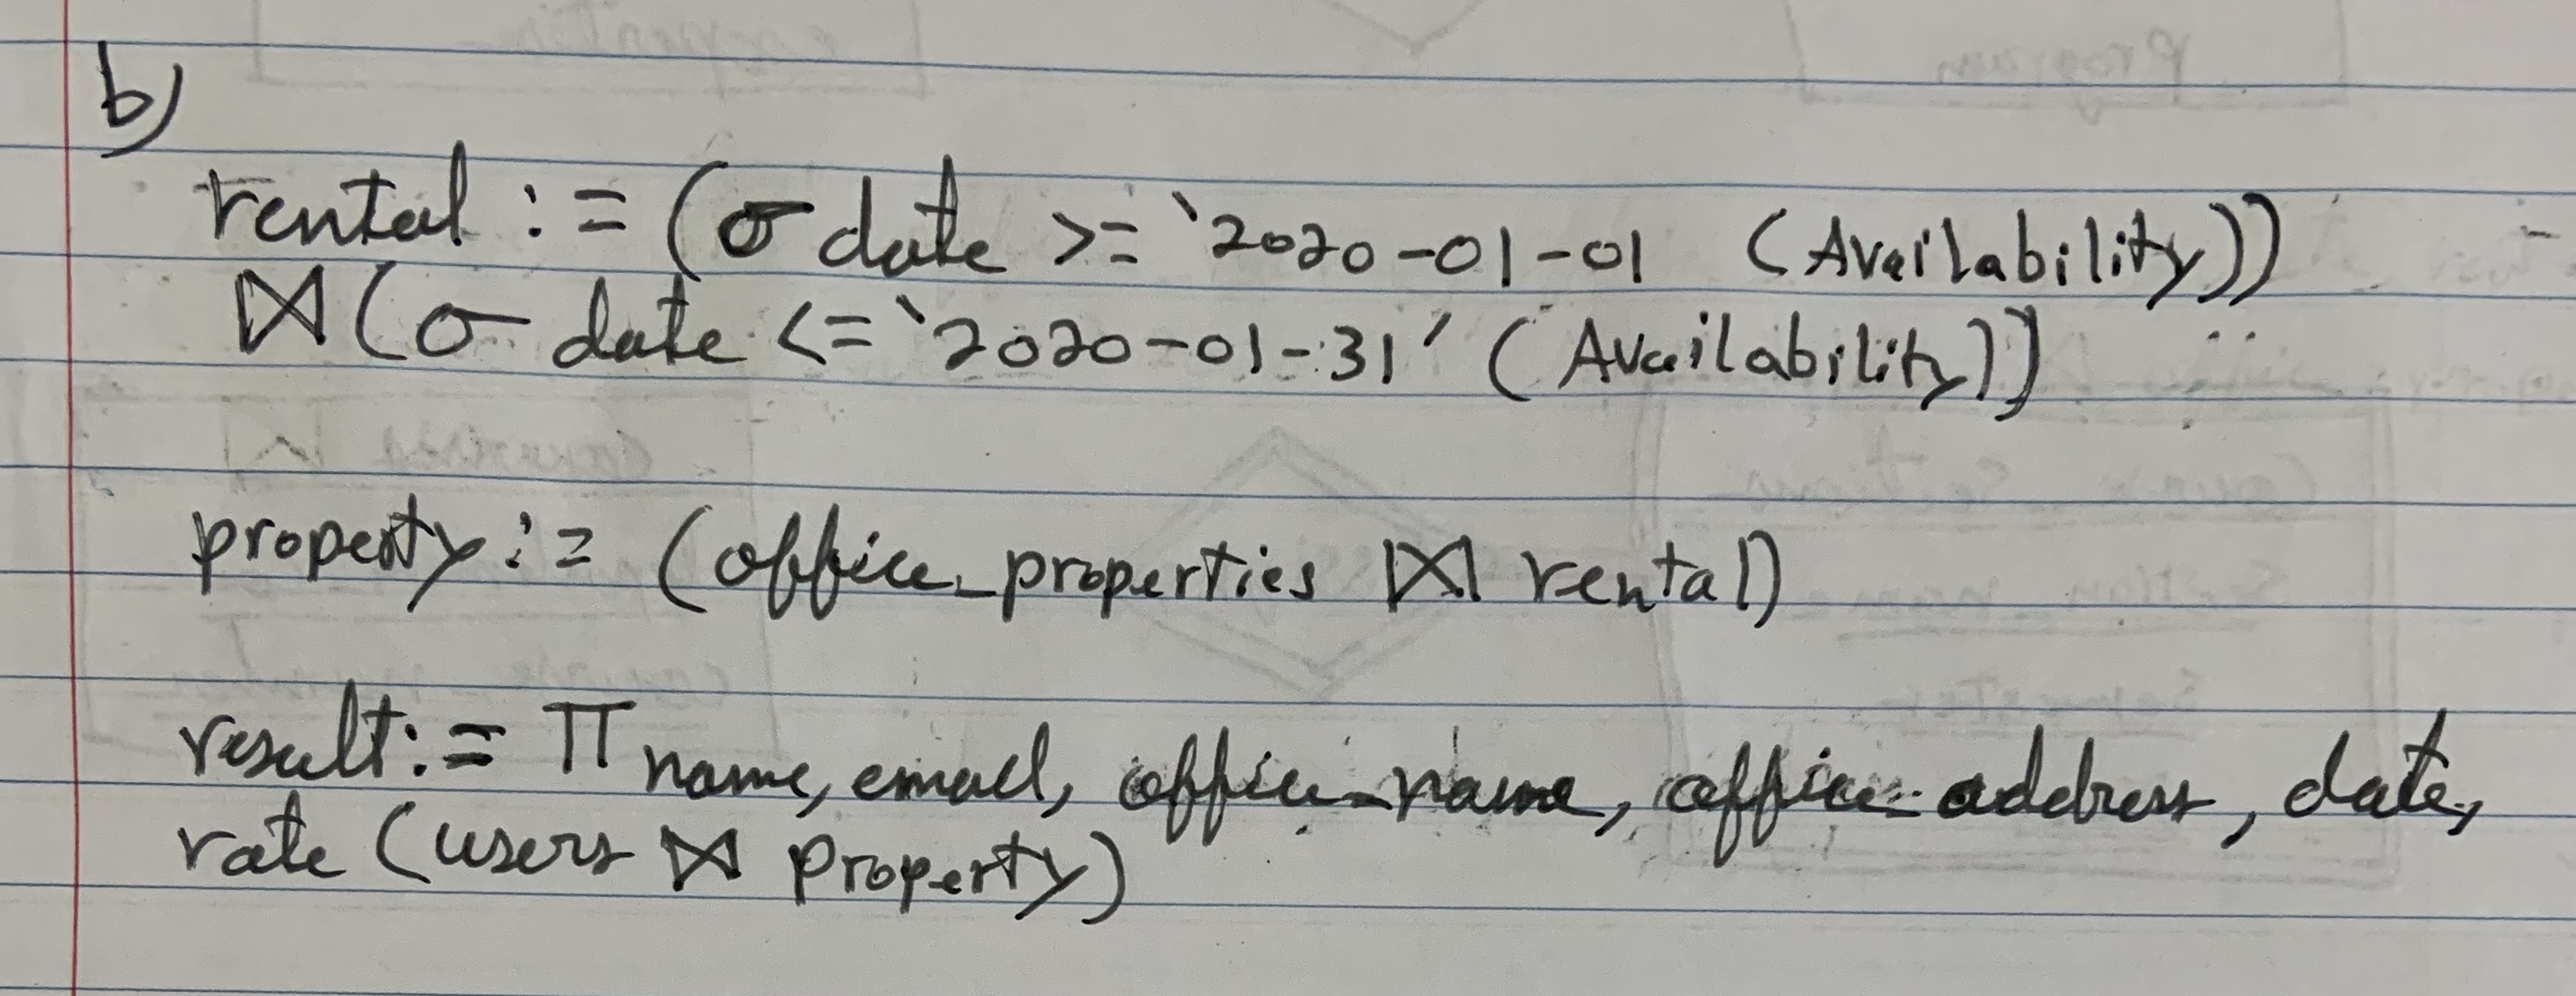 b)
rental := (σ date >= '2020-01-01 (Availability))
⋈ (σ date <= '2020-01-31' (Availability))
property := (office_properties ⋈ rental)
result := π name, email, office_name, office_address, date,
rate (users ⋈ property)